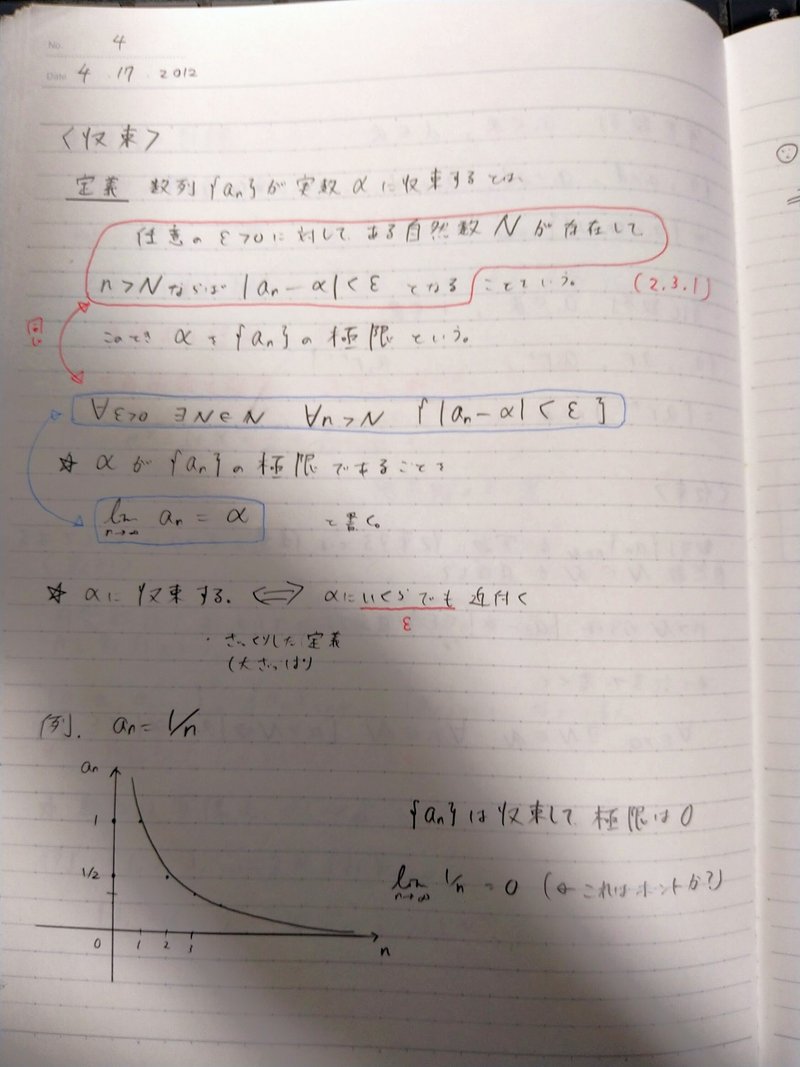 No. 4
Date 4 . 17 . 2012
〈収束〉
定義 数列{an}が実数αに収束するとは、
任意のε>0に対して ある自然数Nが存在して
n>Nならば |an-α|<ε となる ことをいう。 (2.3.1)
同じ
このとき αを{an}の極限という。
∀ε>0 ∃N∈N ∀n>N {|an-α|<ε}
☆ αが{an}の極限であることを
lim n→∞ an = α と書く。
☆ αに収束する. ⟺ αにいくらでも近付く
ε
・ざっくりした定義
(大ざっぱ)
例. an=1/n
an
1
1/2
0 1 2 3 n
{an}は収束して極限は0
lim n→∞ 1/n = 0 (← これはホントか?)